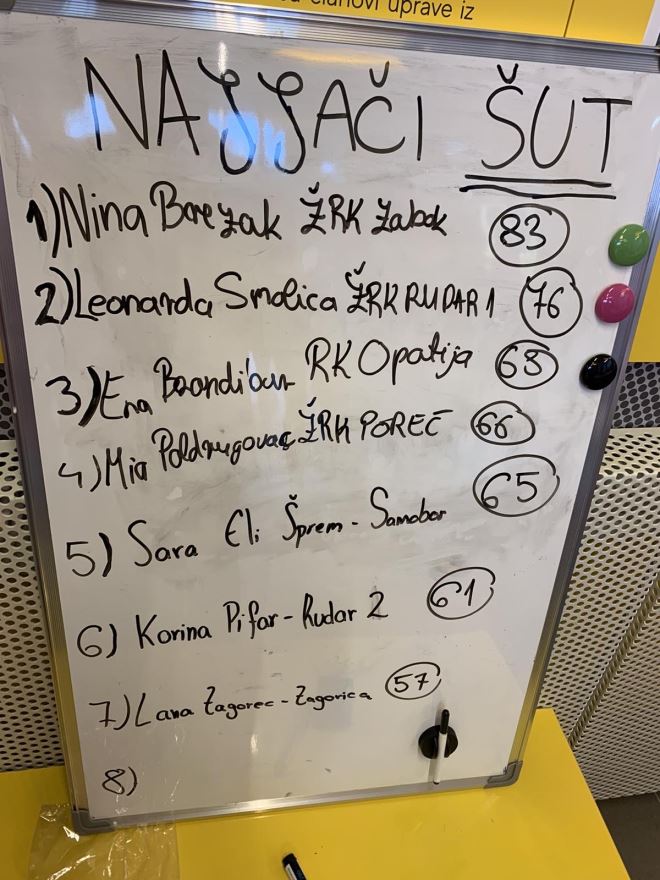 članovi uprave iz
NAJJAČI ŠUT
1) Nina Barezak ŽRK Zabok 83
2) Leonarda Smolica ŽRK RUDAR 1 76
3) Ena RK Opatija 68
4) Mia Poldrugovac ŽRK POREČ 66
5) Sara Eli Šprem - Samobor 65
6) Korina Pifar - Rudar 2 61
7) Lana Zagorec - Zagorica 57
8)